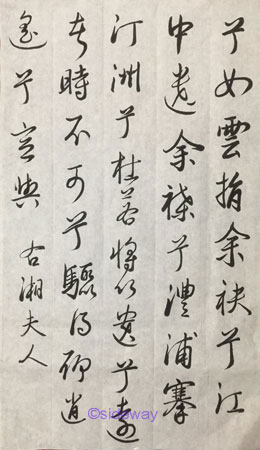 兮如雲捐余袂兮江
中遺余褋兮澧浦搴
汀洲兮杜若將以遺兮遠
者時不可兮驟得聊逍
遙兮容與 右湘夫人
©sideway